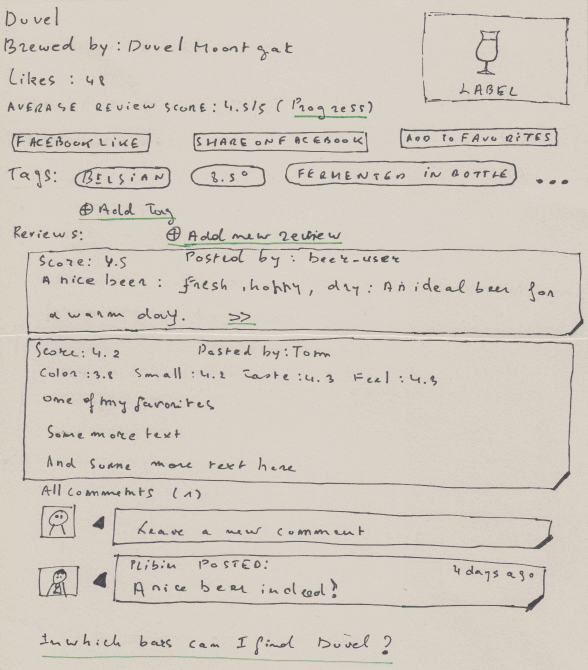 Duvel
Brewed by : Duvel Moortgat
Likes : 48
AVERAGE REVIEW SCORE: 4.5/5 (Progress)
LABEL
FACEBOOK LIKE
SHARE ON FACEBOOK
ADD TO FAVORITES
Tags: BELGIAN 8.5° FERMENTED IN BOTTLE ...
⊕ Add Tag
Reviews: ⊕ Add new review
Score: 4.5 Posted by : beer-user
A nice beer : fresh, hoppy, dry : An ideal beer for
a warm day. >>
Score: 4.2 Posted by: Tom
Color : 3.8 Small : 4.2 Taste : 4.3 Feel : 4.3
One of my favorites
Some more text
And some more text here
All comments (1)
Leave a new comment
POSTED: 4 days ago
A nice beer indeed!
In which bars can I find Duvel ?